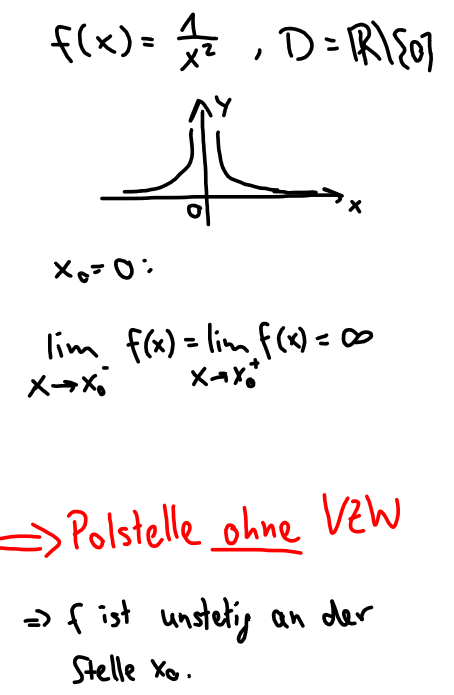 f(x) = 1/x² , D = ℝ\{0}
y
0
x
x₀ = 0 :
lim f(x) = lim f(x) = ∞
x→x₀⁻ x→x₀⁺
⇒ Polstelle ohne VZW
⇒ f ist unstetig an der
Stelle x₀.